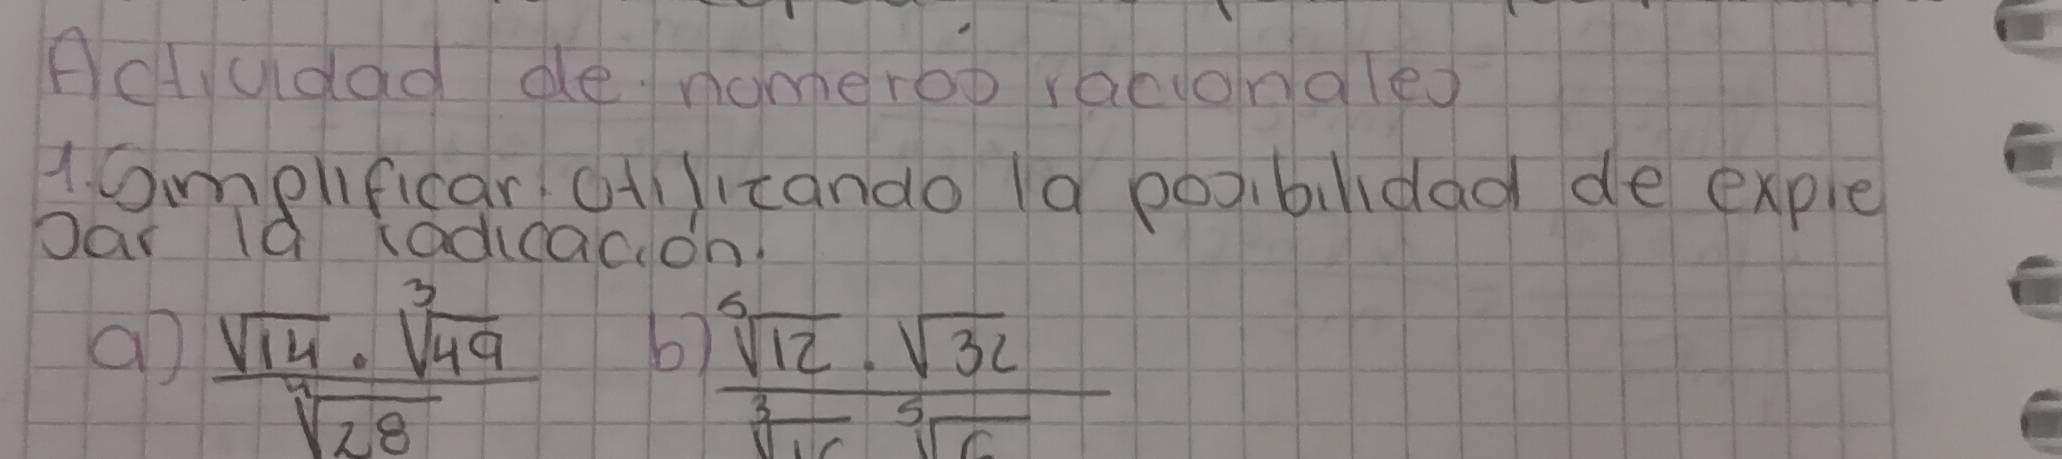 Actividad de números racionales
1. Simplificar utilizando la posibilidad de expre
sar la radicación.
a) √14 · ∛49 / ∜28 b) ⁵√12 · √32 / ∛16 ⁵√6